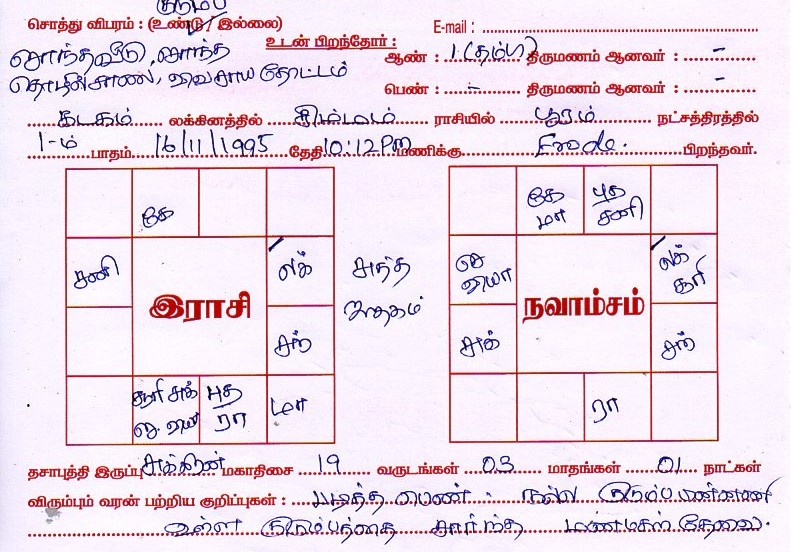 குடும்ப
சொத்து விபரம் : (உண்டு / இல்லை) E-mail :
சொந்தவீடு, சொந்த உடன் பிறந்தோர் : ஆண் : 1 (தம்பி) திருமணம் ஆனவர் : -
விவசாய தோட்டம் பெண் : - திருமணம் ஆனவர் : -
கடகம் லக்கினத்தில் சிம்மம் ராசியில் பூரம் நட்சத்திரத்தில்
1-ம் பாதம் 16/11/1995 தேதி 10:12 Pm மணிக்கு Erode. பிறந்தவர்.
கே கே மா புத சனி
சனி லக் அந்த குரு லக் சூரி
இராசி ஜாதகம் நவாம்சம்
சந் சுக் சந்
சூரி சுக் புத ரா மா ரா
தசாபுத்தி இருப்பு சுக்கிரன் மகாதிசை 19 வருடங்கள் 03 மாதங்கள் 01 நாட்கள்
விரும்பும் வரன் பற்றிய குறிப்புகள் : படித்த பெண். நல்ல குடும்ப
உள்ள குடும்பத்தை சார்ந்த மணமகள் தேவை.